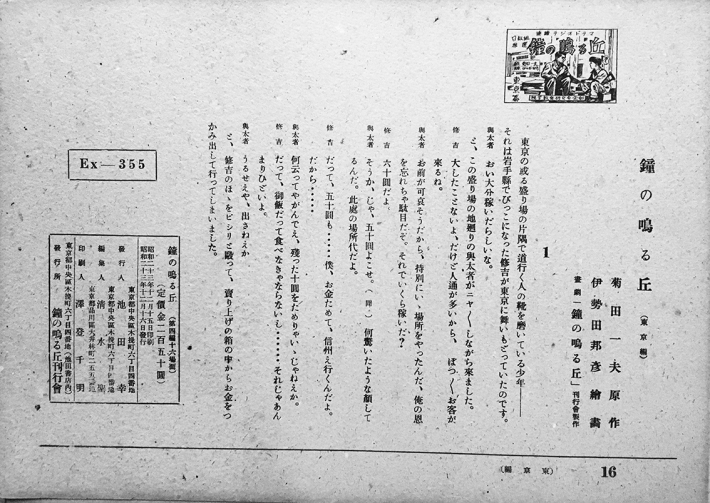 鐘の鳴る丘（東京編）
菊田一夫原作
伊勢田邦彦繪畫
畫劇「鐘の鳴る丘」刊行會製作
1
東京の或る盛り場の片隅で道行く人の靴を磨いている少年──
それは岩手縣でびっこになった修吉が東京に舞いもどっていたのです。
與太者　おい大分稼いだらしいな。
と、この盛り場の地廻りの與太者がニヤ〳〵しながら來ました。
修吉　大したことないよ、だけど人通が多いから、ぽつ〳〵お客が
來るね。
與太者　お前が可哀そうだから、特別にい、場所をやったんだ、俺の恩
を忘れちゃ駄目だぞ。それでいくら稼いだ？
修吉　六十圓だよ。
與太者　そうか、じゃ、五十圓よこせ。（間。）何驚いたような顔して
るんだ。此處の場所代だよ。
修吉　だって、五十圓も……僕、お金ためて、信州え行くんだよ。
だから……
與太者　何云ってやがんでえ、殘った十圓をためりゃい、じゃねえか。
修吉　だって、御飯だって食べなきゃならないし……それじゃあん
まりひどいよ。
與太者　うるせえや、出さねえか
と、修吉のほゝをピシリと毆って、賣り上げの箱の中からお金をつ
かみ出して行ってしまいました。
Ex—355
鐘の鳴る丘（第四編十六場面）
（定價金二百五十圓）
昭和二十三年十二月十五日印刷
昭和二十三年十二月十六日發行
東京都中央區木挽町六丁目四番地
發行人　池田幸
東京都中央區木挽町六丁目四番地
編集人　清水
東京都品川區大井林町二五五
印刷人　澤登千明
東京都中央區木挽町六丁目四番地（池田書店内）
發行所　鐘の鳴る丘刊行會
鐘の鳴る丘
（東京編）
16